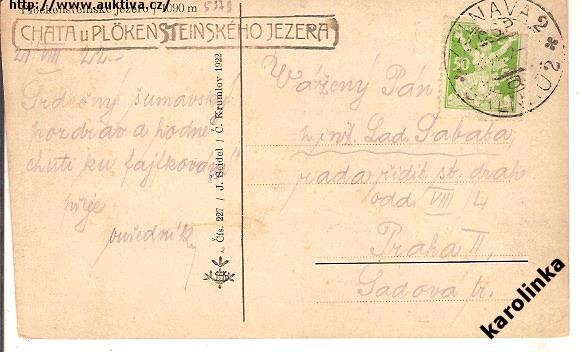 http://www.auktiva.cz/
Plöckensteinské jezero 1090 m
CHATA u PLÖKENSTEINSKÉHO JEZERA
VIII 22.
Srdečný šumavský
pozdrav a hodně
chuti ku
přeje
Čís. 227 / J. Seidel / Č. Krumlov 1922
50
NAVA 2
Vážený Pán
inž. Lad. Sabata,
rada ředit. st. drah
odd. VIII 4
Praha II,
Sadová tř.
karolinka